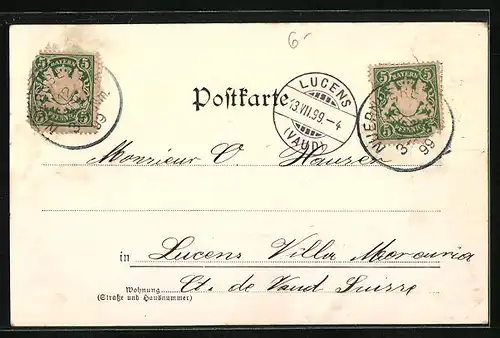 6-
BAYERN
5 5
PFENNIG
BAYERN
5 5
PFENNIG
99
Postkarte
LUCENS
13.VII.99.-4
(VAUD)
NUERN
3
99
Monsieur O. Hauser
in Lucens Villa Mercuria
Wohnung
(Straße und Hausnummer)
Ct. de Vaud Suisse